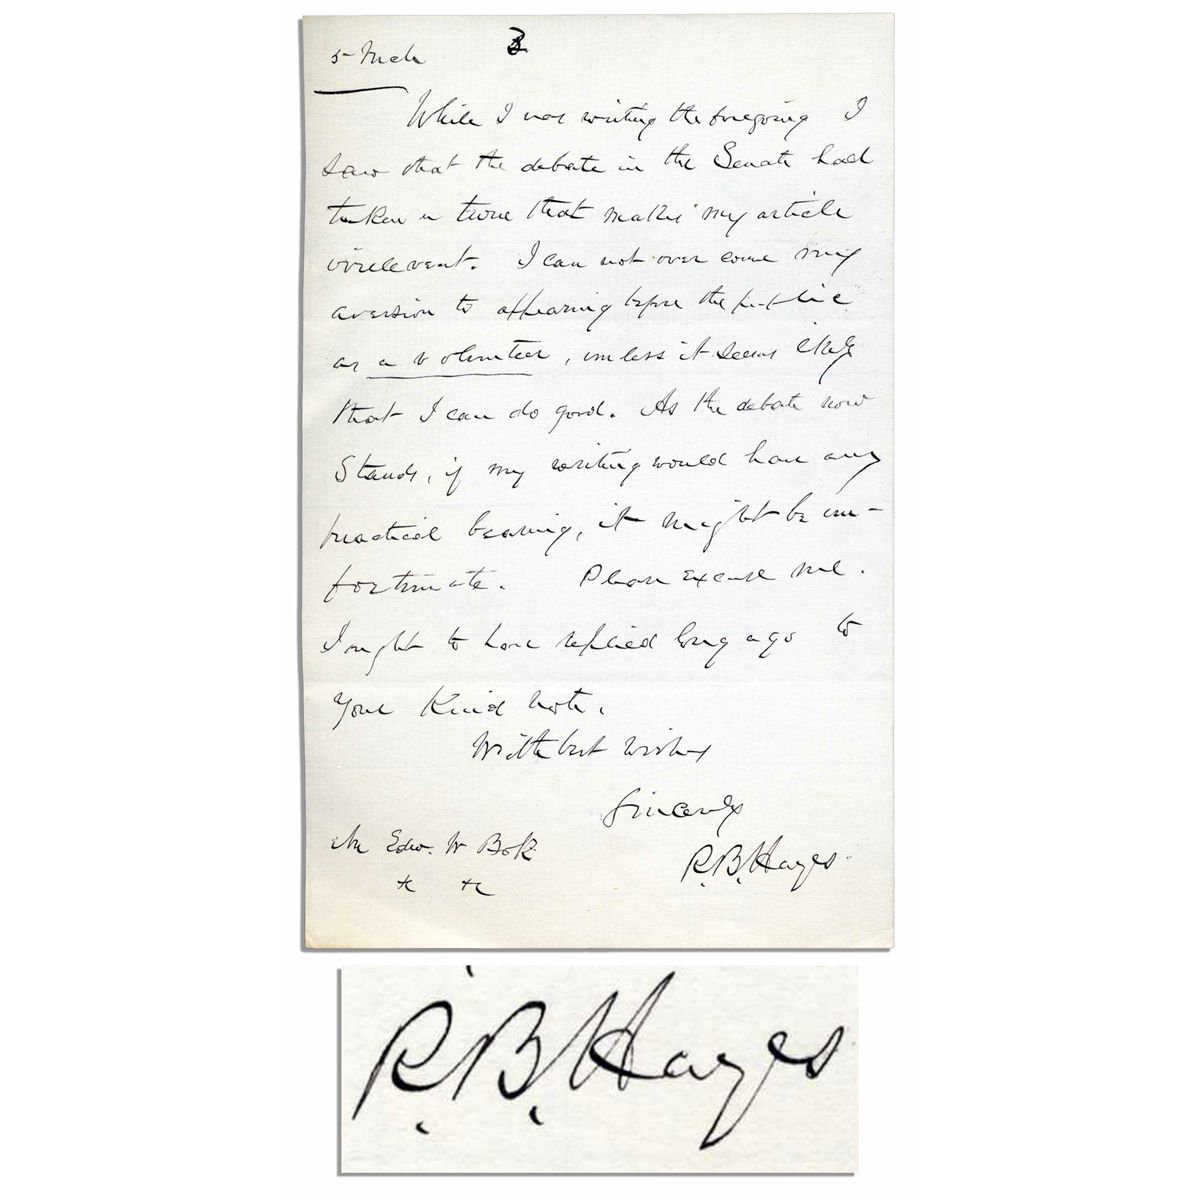 5- Mch
3
While I was writing the foregoing I
saw that the debate in the Senate had
taken a turn that makes my article
irrelevent. I can not over come my
aversion to appearing before the public
as a volunteer, unless it seems likely
that I can do good. As the debate now
stands, if my writing would have any
practical bearing, it might be un-
fortunate. Please excuse me.
I ought to have replied long ago to
your kind note.
With best wishes
Sincerely
R. B. Hayes
Mr Edw. W Bok
R. B. Hayes